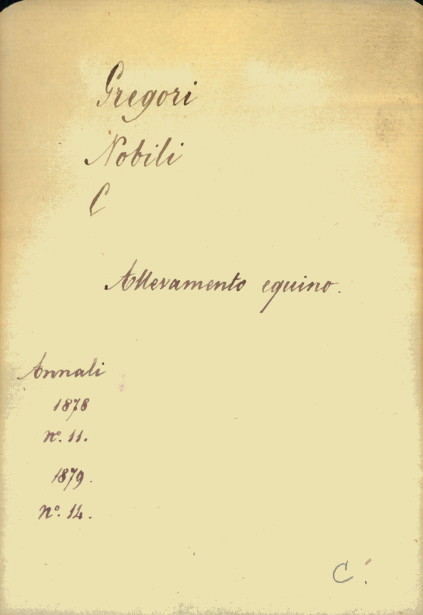 Gregori
Nobili
C
Allevamento equino.
Annali
1878
Nº. 11.
1879.
Nº. 14.
C.